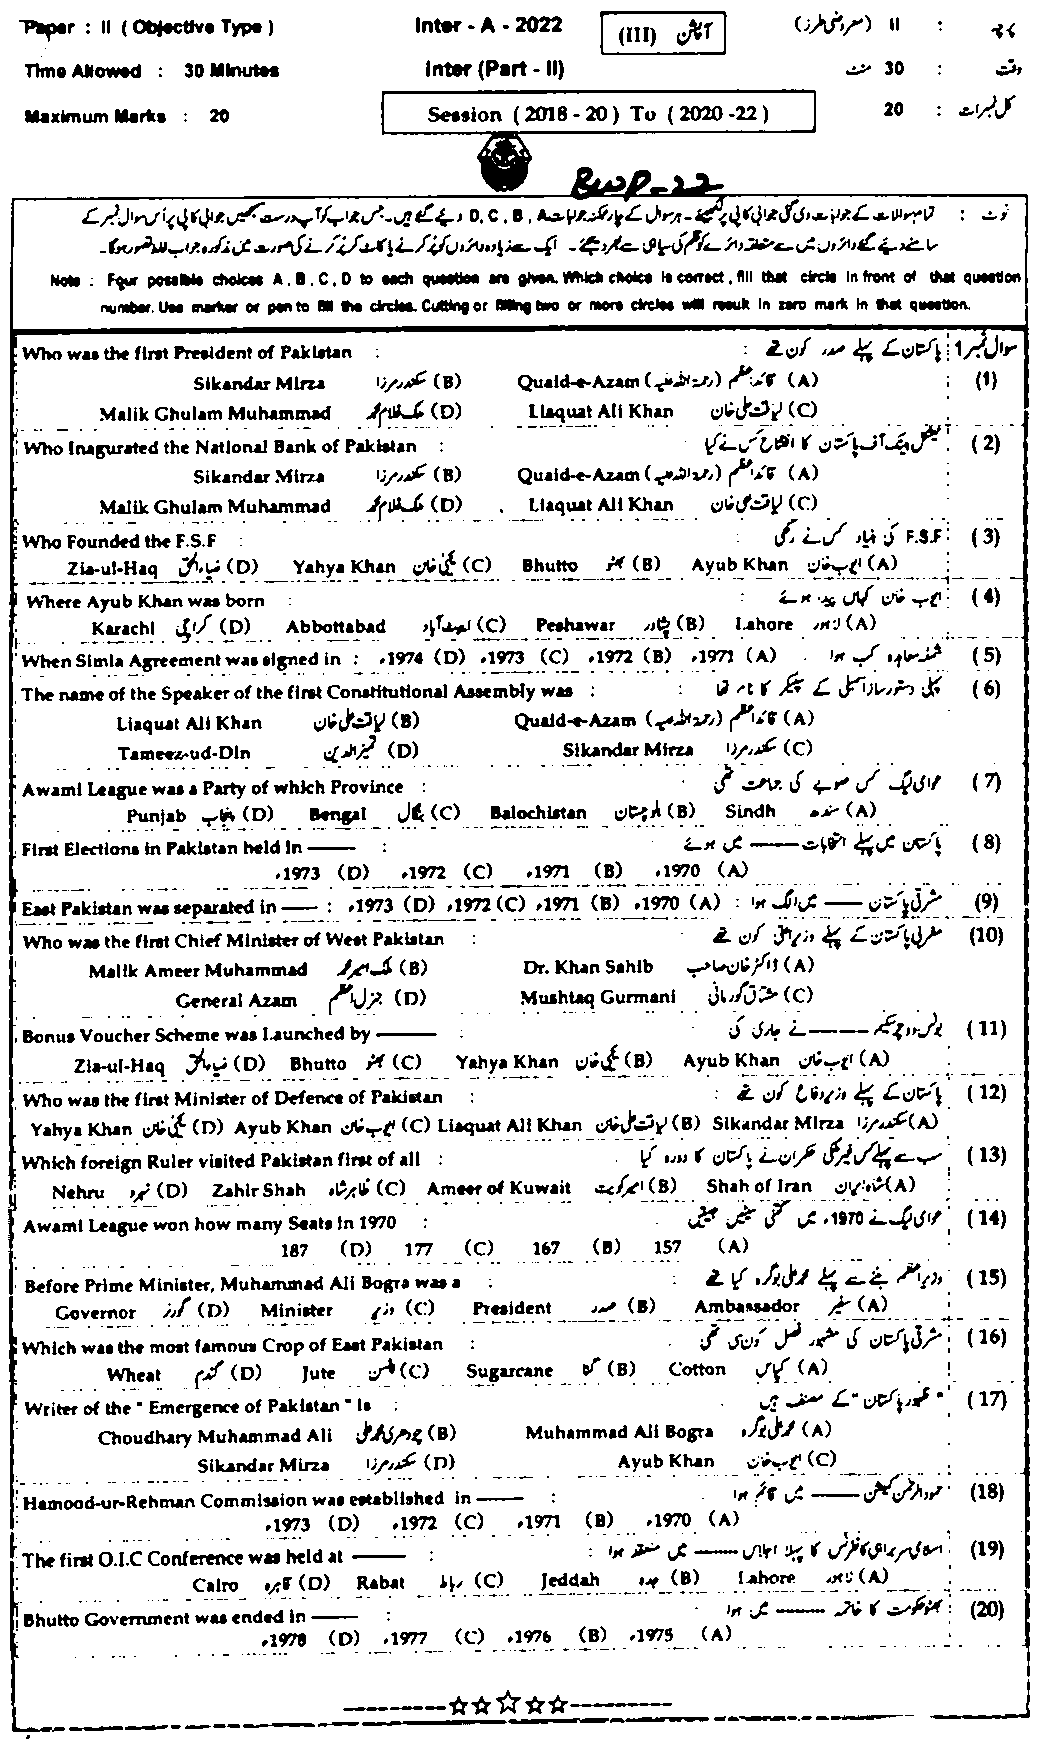 Paper : II ( Objective Type ) Inter - A - 2022 آپشن (III) پرچہ : II (معروضی طرز)
Time Allowed : 30 Minutes Inter (Part - II) وقت : 30 منٹ
Maximum Marks : 20 Session ( 2018 - 20 ) To ( 2020 -22 ) کل نمبرات : 20
BWP-22
نوٹ : تمام سوالات کے جوابات دی گئی جوابی کاپی پر لکھیے۔ ہر سوال کے چار ممکنہ جوابات D, C, B, A دیے گئے ہیں۔ جس جواب کو آپ درست سمجھیں جوابی کاپی پر اُس سوال نمبر کے
سامنے دیے گئے دائروں میں سے متعلقہ دائرے کو قلم کی سیاہی سے بھر دیجئے۔ ایک سے زیادہ دائروں کو پُر کرنے یا کاٹ کر پُر کرنے کی صورت میں مذکورہ جواب غلط تصور ہوگا۔
Note : Four possible choices A , B , C , D to each question are given. Which choice is correct , fill that circle in front of that question
number. Use marker or pen to fill the circles. Cutting or filling two or more circles will result in zero mark in that question.
سوال نمبر 1 پاکستان کے پہلے صدر کون تھے : Who was the first President of Pakistan :
(1) (A) قائداعظم (رحمۃ اللہ علیہ) Quaid-e-Azam (B) سکندر مرزا Sikandar Mirza
(C) لیاقت علی خان Liaquat Ali Khan (D) ملک غلام محمد Malik Ghulam Muhammad
(2) نیشنل بینک آف پاکستان کا افتتاح کس نے کیا Who Inagurated the National Bank of Pakistan :
(A) قائداعظم (رحمۃ اللہ علیہ) Quaid-e-Azam (B) سکندر مرزا Sikandar Mirza
(C) لیاقت علی خان Liaquat Ali Khan (D) ملک غلام محمد Malik Ghulam Muhammad
(3) F.S.F کی بنیاد کس نے رکھی Who Founded the F.S.F :
(A) ایوب خان Ayub Khan (B) بھٹو Bhutto (C) یحییٰ خان Yahya Khan (D) ضیاءالحق Zia-ul-Haq
(4) ایوب خان کہاں پیدا ہوئے : Where Ayub Khan was born :
(A) لاہور Lahore (B) پشاور Peshawar (C) ایبٹ آباد Abbottabad (D) کراچی Karachi
(5) شملہ معاہدہ کب ہوا . When Simla Agreement was signed in : (A) 1971ء (B) 1972ء (C) 1973ء (D) 1974ء
(6) پہلی دستور ساز اسمبلی کے سپیکر کا نام تھا : The name of the Speaker of the first Constitutional Assembly was :
(A) قائداعظم (رحمۃ اللہ علیہ) Quaid-e-Azam (B) لیاقت علی خان Liaquat Ali Khan
(C) سکندر مرزا Sikandar Mirza (D) تمیزالدین Tameez-ud-Din
(7) عوامی لیگ کس صوبے کی جماعت تھی Awami League was a Party of which Province :
(A) سندھ Sindh (B) بلوچستان Balochistan (C) بنگال Bengal (D) پنجاب Punjab
(8) پاکستان میں پہلے انتخابات —— میں ہوئے : First Elections in Pakistan held in —— :
(A) 1970ء (B) 1971ء (C) 1972ء (D) 1973ء
(9) مشرقی پاکستان —— میں الگ ہوا : East Pakistan was separated in —— : (A) 1970ء (B) 1971ء (C) 1972ء (D) 1973ء
(10) مغربی پاکستان کے پہلے وزیراعلیٰ کون تھے : Who was the first Chief Minister of West Pakistan :
(A) ڈاکٹر خان صاحب Dr. Khan Sahib (B) ملک امیر محمد Malik Ameer Muhammad
(C) مشتاق گورمانی Mushtaq Gurmani (D) جنرل اعظم General Azam
(11) بونس ووچر سکیم —— نے جاری کی Bonus Voucher Scheme was Launched by —— :
(A) ایوب خان Ayub Khan (B) یحییٰ خان Yahya Khan (C) بھٹو Bhutto (D) ضیاءالحق Zia-ul-Haq
(12) پاکستان کے پہلے وزیر دفاع کون تھے : Who was the first Minister of Defence of Pakistan :
(A) سکندر مرزا Sikandar Mirza (B) لیاقت علی خان Liaquat Ali Khan (C) ایوب خان Ayub Khan (D) یحییٰ خان Yahya Khan
(13) سب سے پہلے کس غیر ملکی حکمران نے پاکستان کا دورہ کیا Which foreign Ruler visited Pakistan first of all :
(A) شاہ ایران Shah of Iran (B) امیر کویت Ameer of Kuwait (C) ظاہر شاہ Zahir Shah (D) نہرو Nehru
(14) عوامی لیگ نے 1970ء میں کتنی سیٹیں جیتیں Awami League won how many Seats in 1970 :
(A) 157 (B) 167 (C) 177 (D) 187
(15) وزیراعظم بننے سے پہلے محمد علی بوگرہ کیا تھے : Before Prime Minister, Muhammad Ali Bogra was a :
(A) سفیر Ambassador (B) صدر President (C) وزیر Minister (D) گورنر Governor
(16) مشرقی پاکستان کی مشہور فصل کون سی تھی Which was the most famous Crop of East Pakistan :
(A) کپاس Cotton (B) گنا Sugarcane (C) پٹ سن Jute (D) گندم Wheat
(17) "ظہور پاکستان" کے مصنف ہیں Writer of the " Emergence of Pakistan " is :
(A) محمد علی بوگرہ Muhammad Ali Bogra (B) چودھری محمد علی Choudhary Muhammad Ali
(C) ایوب خان Ayub Khan (D) سکندر مرزا Sikandar Mirza
(18) حمودالرحمن کمیشن —— میں قائم ہوا : Hamood-ur-Rehman Commission was established in —— :
(A) 1970ء (B) 1971ء (C) 1972ء (D) 1973ء
(19) اسلامی سربراہی کانفرنس کا پہلا اجلاس —— میں منعقد ہوا : The first O.I.C Conference was held at —— :
(A) لاہور Lahore (B) جدہ Jeddah (C) رباط Rabat (D) قاہرہ Cairo
(20) بھٹو حکومت کا خاتمہ —— میں ہوا : Bhutto Government was ended in —— :
(A) 1975ء (B) 1976ء (C) 1977ء (D) 1978ء